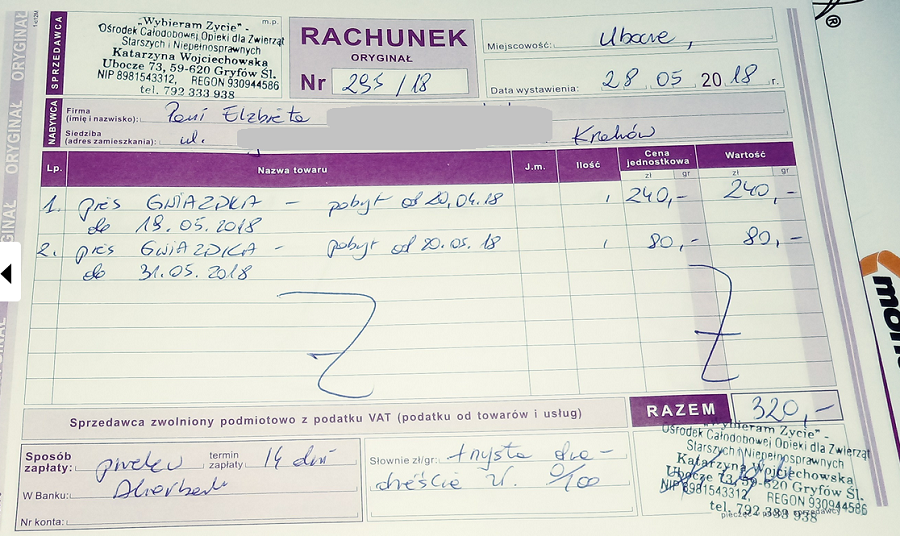 ORYGINAŁ
ORYGINAŁ
SPRZEDAWCA
m.p.
"Wybieram Życie" -
Ośrodek Całodobowej Opieki dla Zwierząt
Starszych i Niepełnosprawnych
Katarzyna Wojciechowska
Ubocze 73, 59-620 Gryfów Śl.
NIP 8981543312, REGON 930944586
tel. 792 333 938
RACHUNEK
ORYGINAŁ
Nr 295/18
Miejscowość: Ubocze,
Data wystawienia: 28 05 2018 r.
NABYWCA
Firma
(imię i nazwisko): Pani Elżbieta
Siedziba
(adres zamieszkania): ul. Kraków
Lp. Nazwa towaru J.m. Ilość Cena jednostkowa Wartość
zł gr zł gr
1. pies GWIAZDKA - pobyt od 20.04.18 1 240,- 240,-
do 19.05.2018
2. pies GWIAZDKA - pobyt od 20.05.18 1 80,- 80,-
do 31.05.2018
Sprzedawca zwolniony podmiotowo z podatku VAT (podatku od towarów i usług)
RAZEM 320,-
Sposób zapłaty: przelew termin zapłaty 14 dni
W Banku:
Nr konta:
Słownie zł/gr: trzysta dwa-
dzieścia zł. 0/100
"Wybieram Życie" -
Ośrodek Całodobowej Opieki dla Zwierząt
Starszych i Niepełnosprawnych
Katarzyna Wojciechowska
Ubocze 73, 59-620 Gryfów Śl.
NIP 8981543312, REGON 930944586
tel. 792 333 938
®